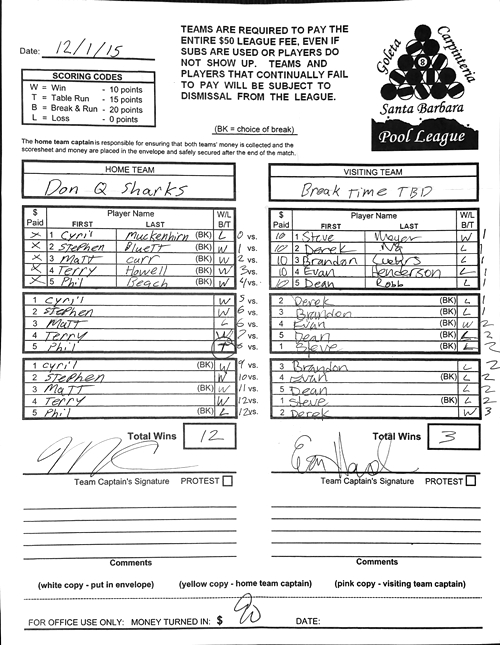 Date: 12/1/15
TEAMS ARE REQUIRED TO PAY THE
ENTIRE $50 LEAGUE FEE, EVEN IF
SUBS ARE USED OR PLAYERS DO
NOT SHOW UP. TEAMS AND
PLAYERS THAT CONTINUALLY FAIL
TO PAY WILL BE SUBJECT TO
DISMISSAL FROM THE LEAGUE.
Goleta Carpinteria
8
Santa Barbara
Pool League
SCORING CODES
W = Win - 10 points
T = Table Run - 15 points
B = Break & Run - 20 points
L = Loss - 0 points
(BK = choice of break)
The home team captain is responsible for ensuring that both teams' money is collected and the
scoresheet and money are placed in the envelope and safely secured after the end of the match.
HOME TEAM VISITING TEAM
Don Q Sharks Break Time TBD
$ Paid Player Name FIRST LAST W/L B/T $ Paid Player Name FIRST LAST W/L B/T
X 1 Cyril Muckenhirn (BK) L 0 vs. 10 1 Steve W 1
X 2 Stephen Bluett (BK) W 1 vs. 10 2 Derek L 1
X 3 Matt Carr (BK) W 2 vs. 10 3 Brandon L 1
X 4 Terry Howell (BK) W 3 vs. 10 4 Evan Henderson L 1
X 5 Phil Beach (BK) W 4 vs. 10 5 Dean Robb L 1
1 Cyril W 5 vs. 2 Derek (BK) L 1
2 Stephen W 6 vs. 3 Brandon (BK) L 1
3 Matt L 6 vs. 4 Evan (BK) W 2
4 Terry W 7 vs. 5 Dean (BK) L 2
5 Phil T 8 vs. 1 Steve (BK) L 2
1 Cyril (BK) W 9 vs. 3 Brandon L 2
2 Stephen W 10 vs. 4 Evan (BK) L 2
3 Matt (BK) W 11 vs. 5 Dean L 2
4 Terry W 12 vs. 1 Steve (BK) L 2
5 Phil (BK) L 12 vs. 2 Derek W 3
Total Wins 12 Total Wins 3
Team Captain's Signature PROTEST Team Captain's Signature PROTEST
Comments Comments
(white copy - put in envelope) (yellow copy - home team captain) (pink copy - visiting team captain)
FOR OFFICE USE ONLY: MONEY TURNED IN: $ DATE: